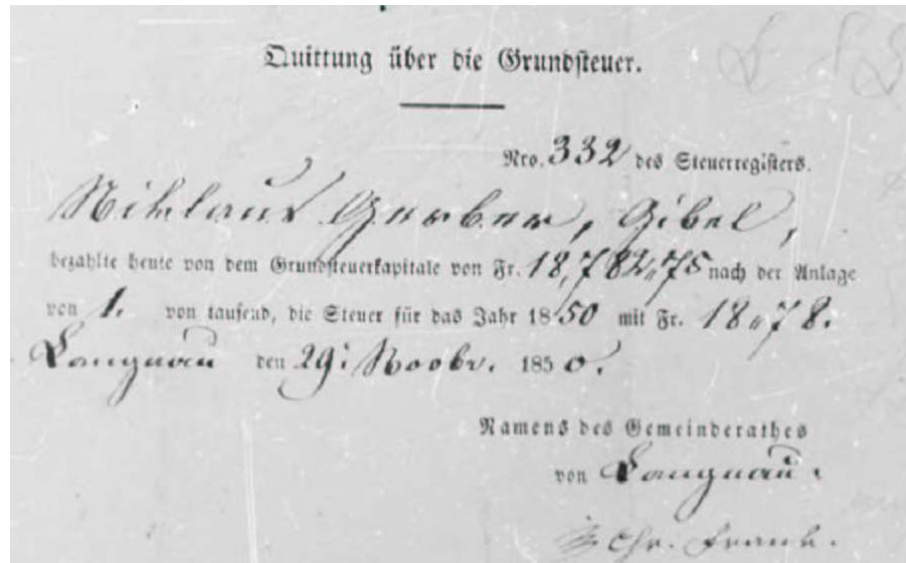 Quittung über die Grundsteuer.
Nro. 332 des Steuerregisters.
Niklaus Gerber, Gibel,
bezahlte heute von dem Grundsteuerkapitale von Fr. 18,782„75 nach der Anlage
von 1. von tausend, die Steuer für das Jahr 1850 mit Fr. 18„78.
Langnau den 29: Novbr. 1850.
Namens des Gemeinderathes
von Langnau.
Chr. Frank.